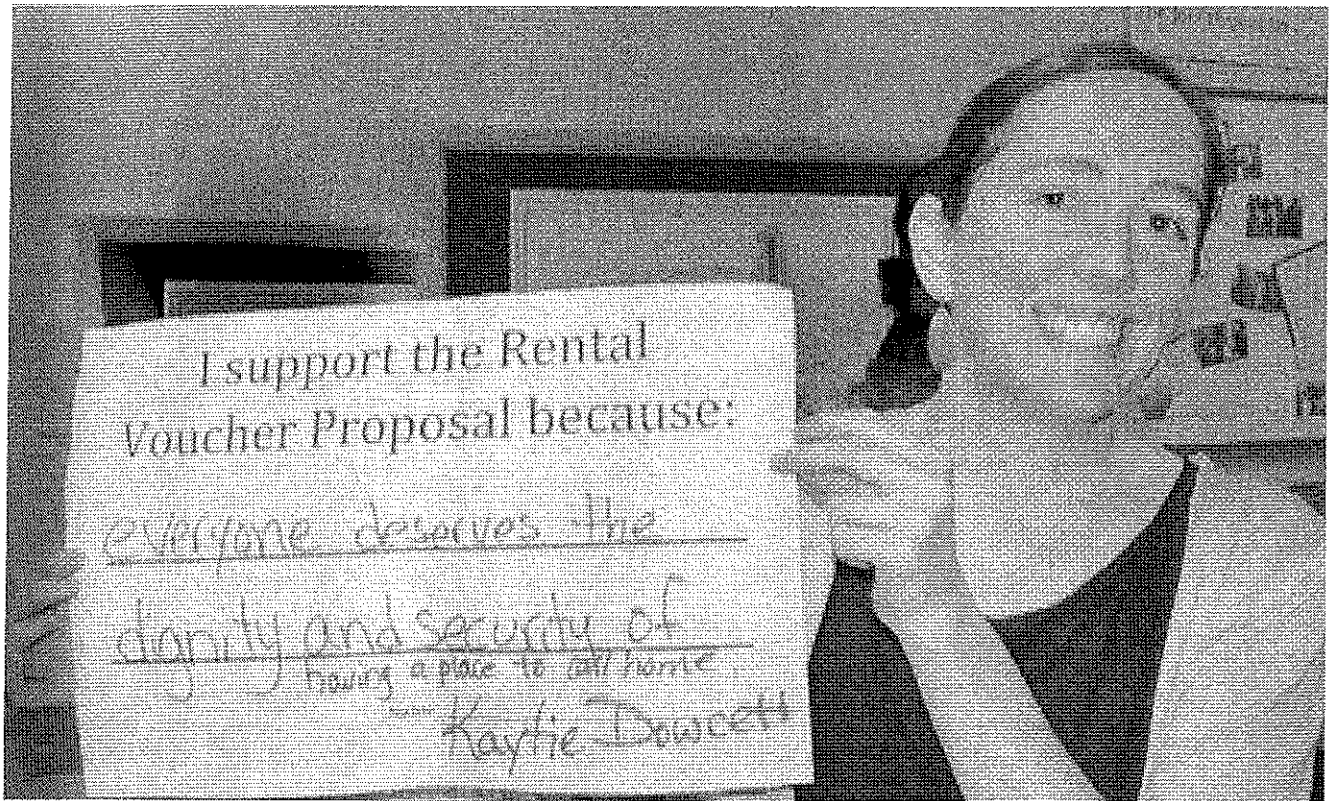 I support the Rental
Voucher Proposal because:
everyone deserves the
dignity and security of
having a place to call home
Kaytie Dowcett